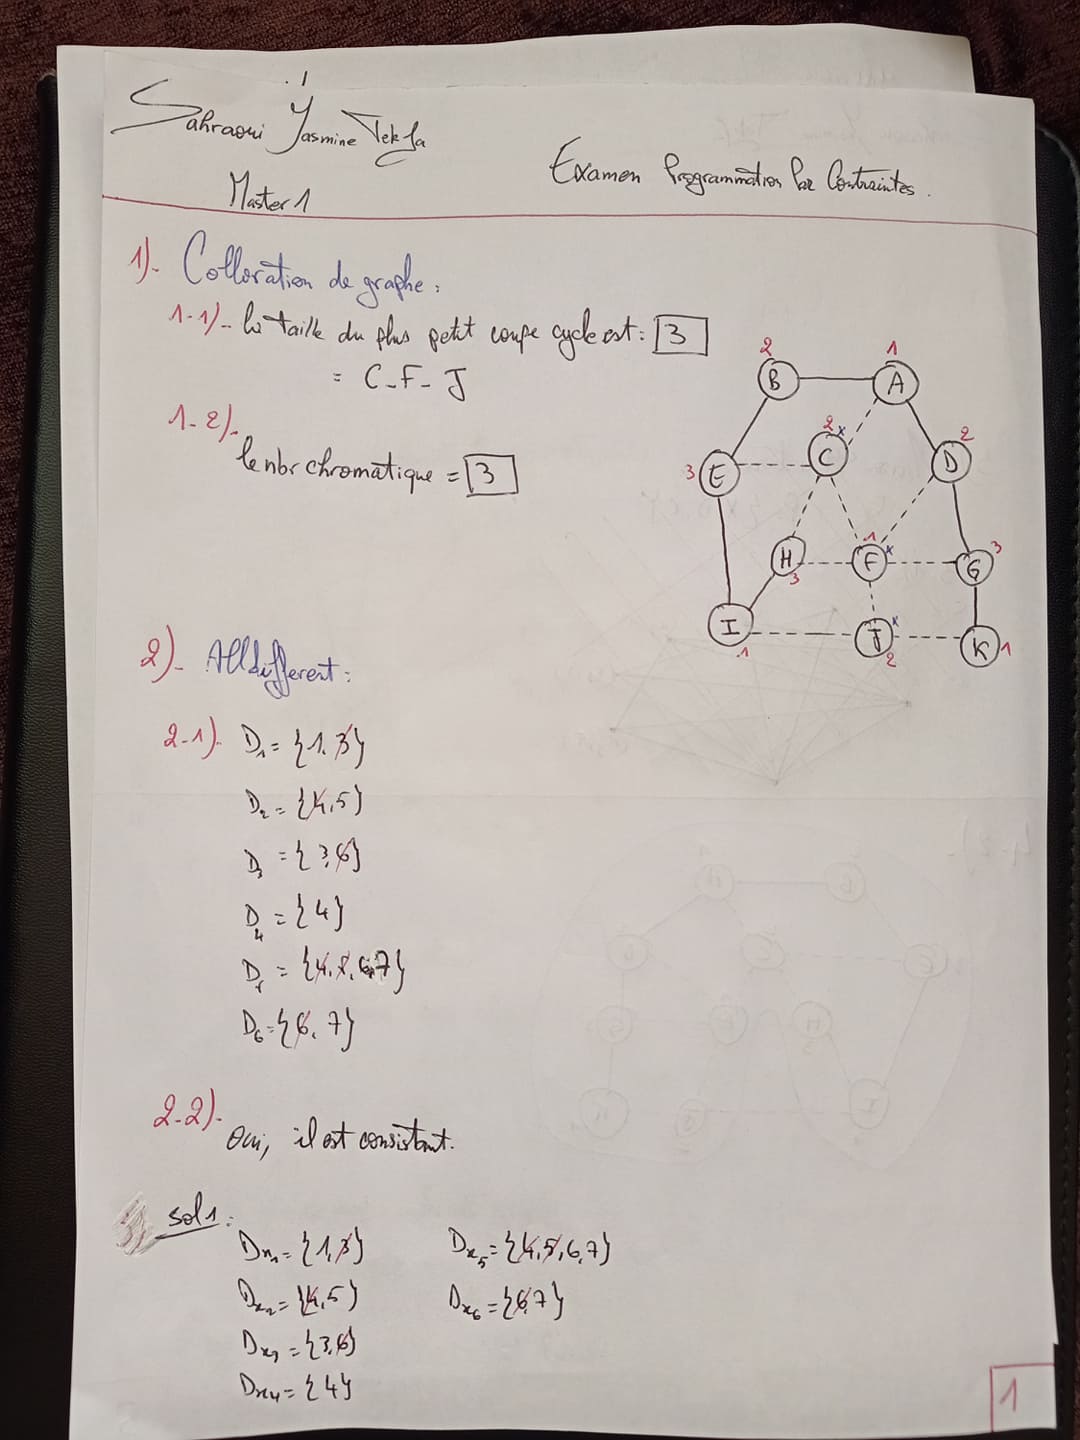 Sahraoui Yasmine Tekfa
Master 1
Examen Programmation Par Contraintes.
1)- Colloration de graphe:
1-1)- la taille du plus petit coupe cycle est: 3
= C-F-J
1-2)-
le nbr chromatique = 3
2 B
1 A
2 x C
2 D
3 E
H 3
1 x F
3 G
I 1
x J 2
K 1
2)- Alldifferent:
2-1). D1 = {1,3}
D2 = {4,5}
D3 = {3,6}
D4 = {4}
D5 = {4,5,6,7}
D6 = {6,7}
2-2)-
Oui, il est consistant.
sol 1:
Dx1 = {1,3}
Dx5 = {4,5,6,7}
Dx2 = {4,5}
Dx6 = {6,7}
Dx3 = {3,6}
Dx4 = {4}
1